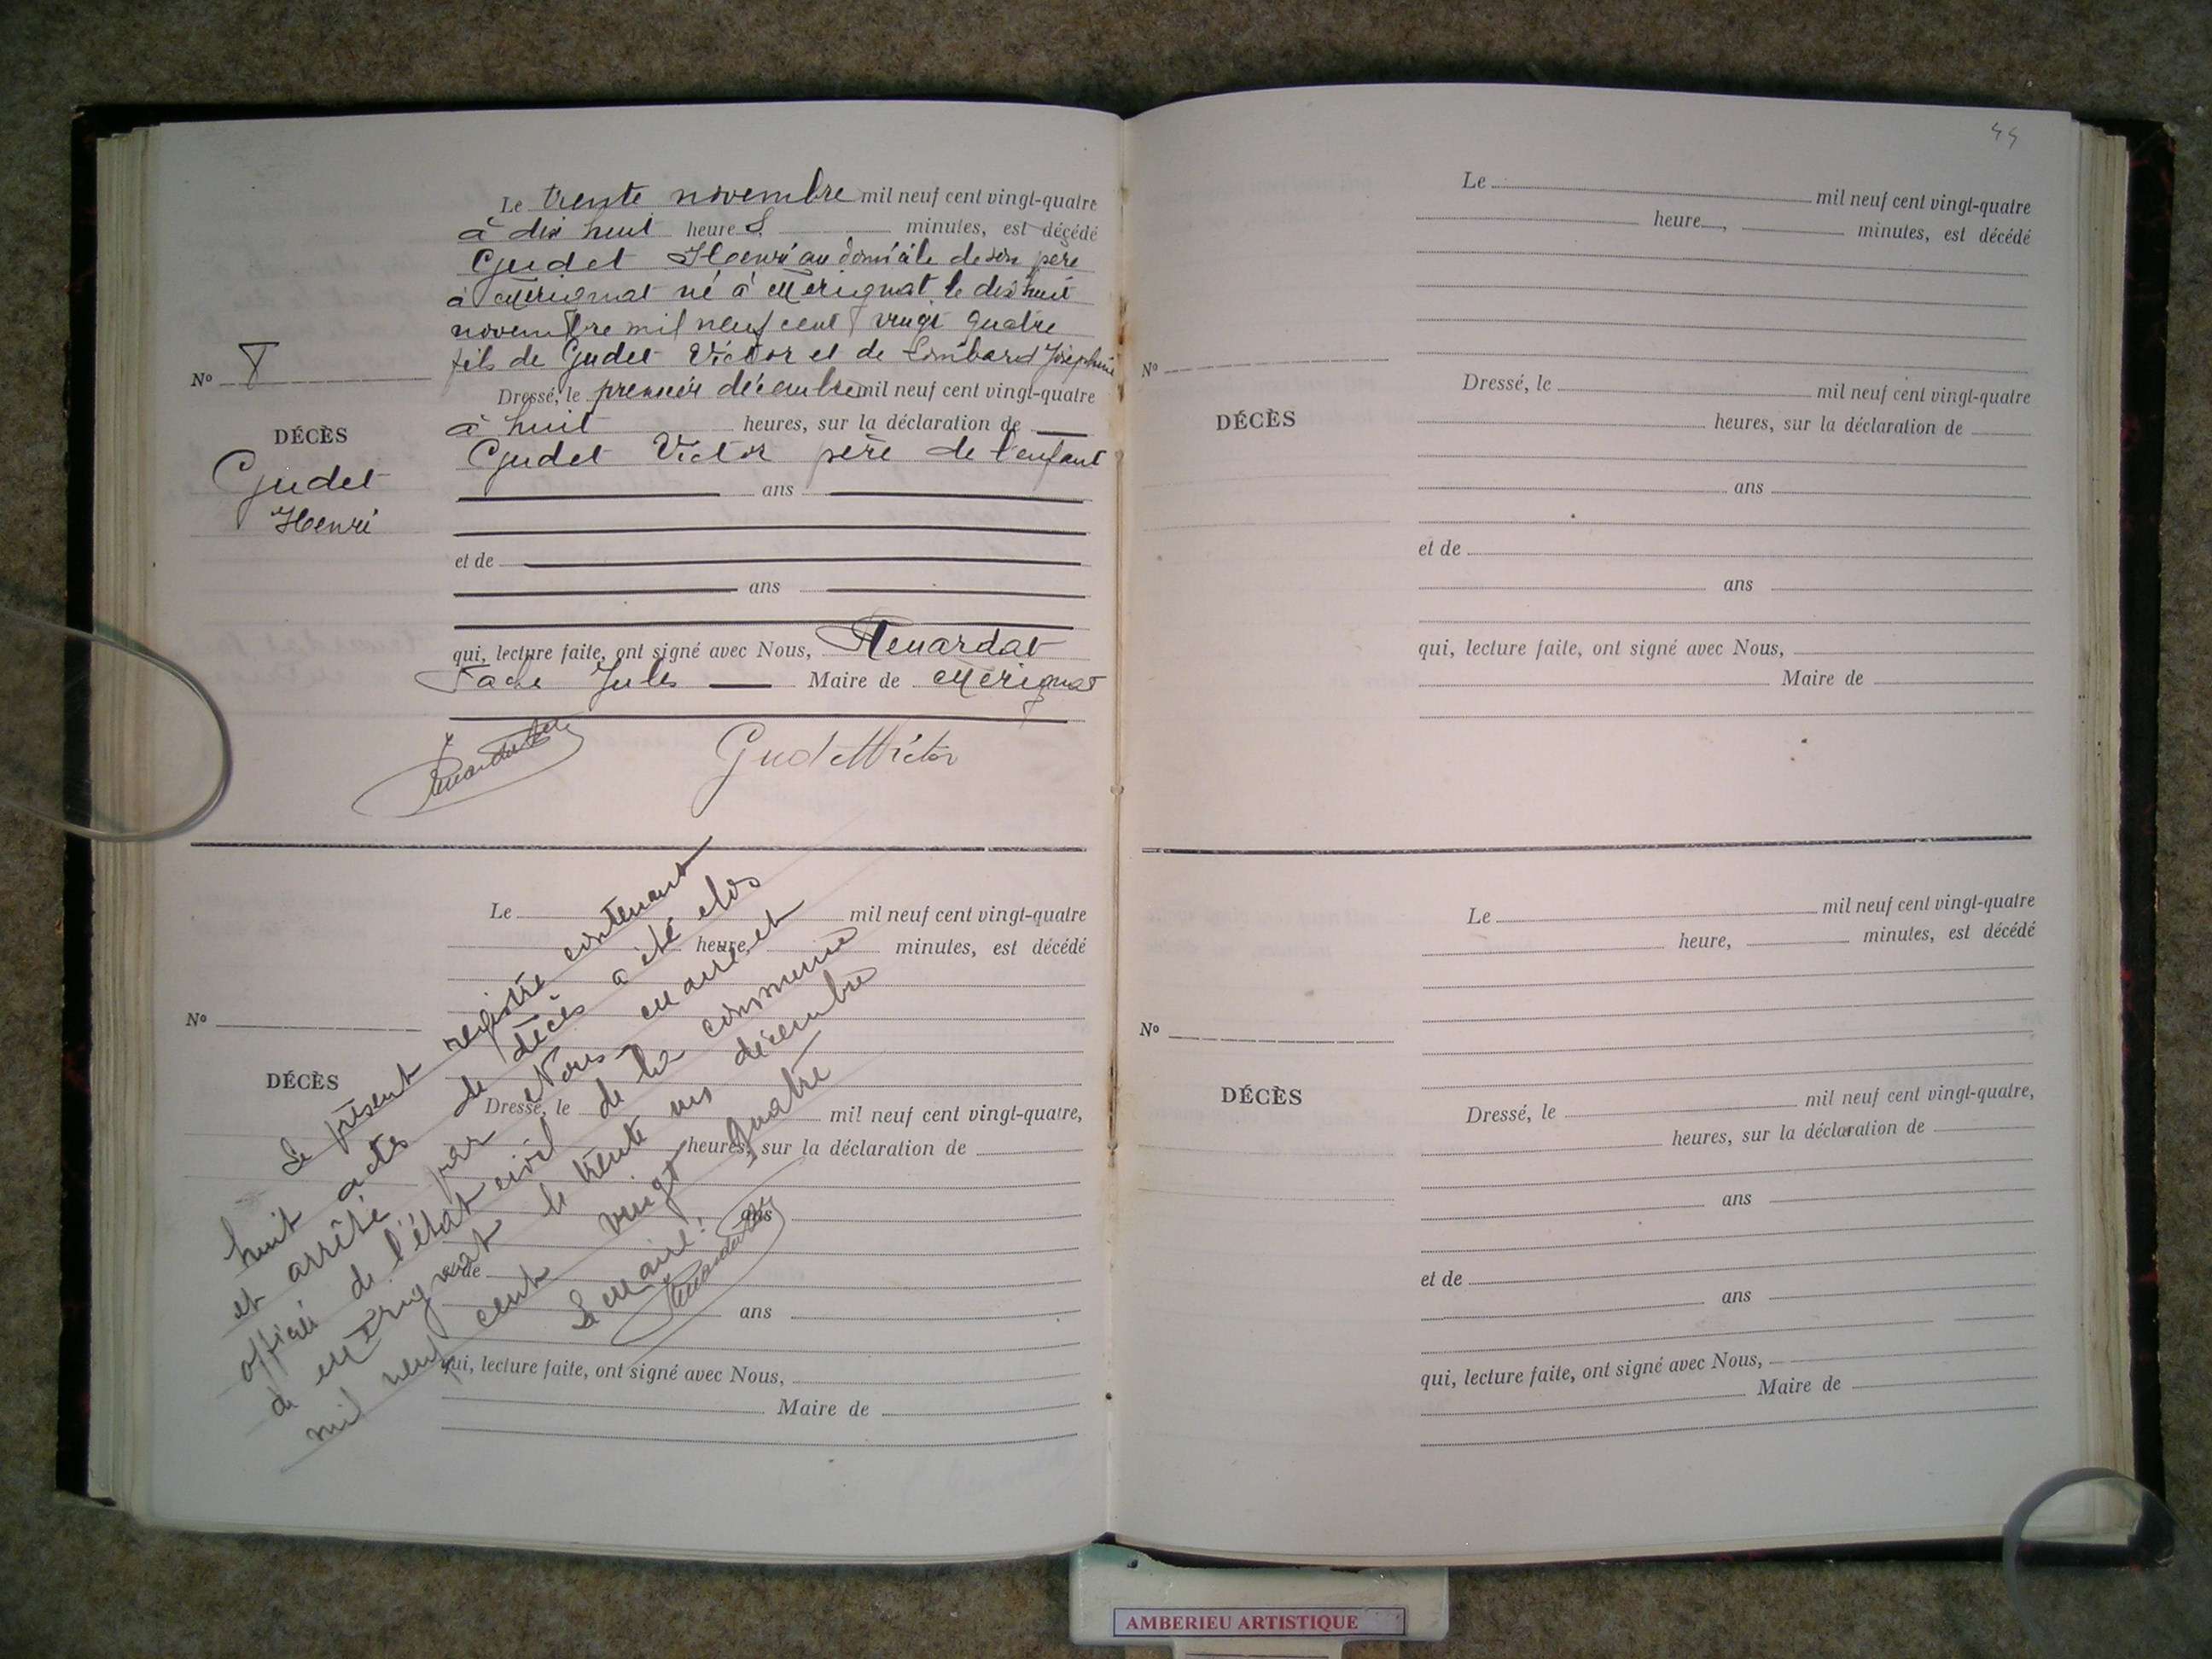 Le trente novembre mil neuf cent vingt-quatre
à dix huit heures, minutes, est décédé
Gudet Henri au domicile de son père
à Mérignat né à Mérignat le dix huit
novembre mil neuf cent vingt quatre
fils de Gudet Victor et de Lombard Joséphine
Nº 8
Dressé, le premier décembre mil neuf cent vingt-quatre
à huit heures, sur la déclaration de
DÉCÈS
Gudet
Henri
Gudet Victor père de l'enfant
ans
et de
ans
qui, lecture faite, ont signé avec Nous, Renardat
Fache Jules Maire de Mérignat
Gudet Victor
Le mil neuf cent vingt-quatre
heure, minutes, est décédé
Nº
DÉCÈS
Dressé, le mil neuf cent vingt-quatre,
heures, sur la déclaration de
ans
et de
ans
qui, lecture faite, ont signé avec Nous,
Maire de
Le présent registre contenant
huit actes de décès a été clos
et arrêté par Nous Maire et
officier de l'état civil de la commune
de Mérignat le trente un décembre
mil neuf cent vingt quatre
Le Maire:
44
Le mil neuf cent vingt-quatre
heure, minutes, est décédé
Nº
DÉCÈS
Dressé, le mil neuf cent vingt-quatre
heures, sur la déclaration de
ans
et de
ans
qui, lecture faite, ont signé avec Nous,
Maire de
Le mil neuf cent vingt-quatre
heure, minutes, est décédé
Nº
DÉCÈS
Dressé, le mil neuf cent vingt-quatre,
heures, sur la déclaration de
ans
et de
ans
qui, lecture faite, ont signé avec Nous,
Maire de
AMBERIEU ARTISTIQUE